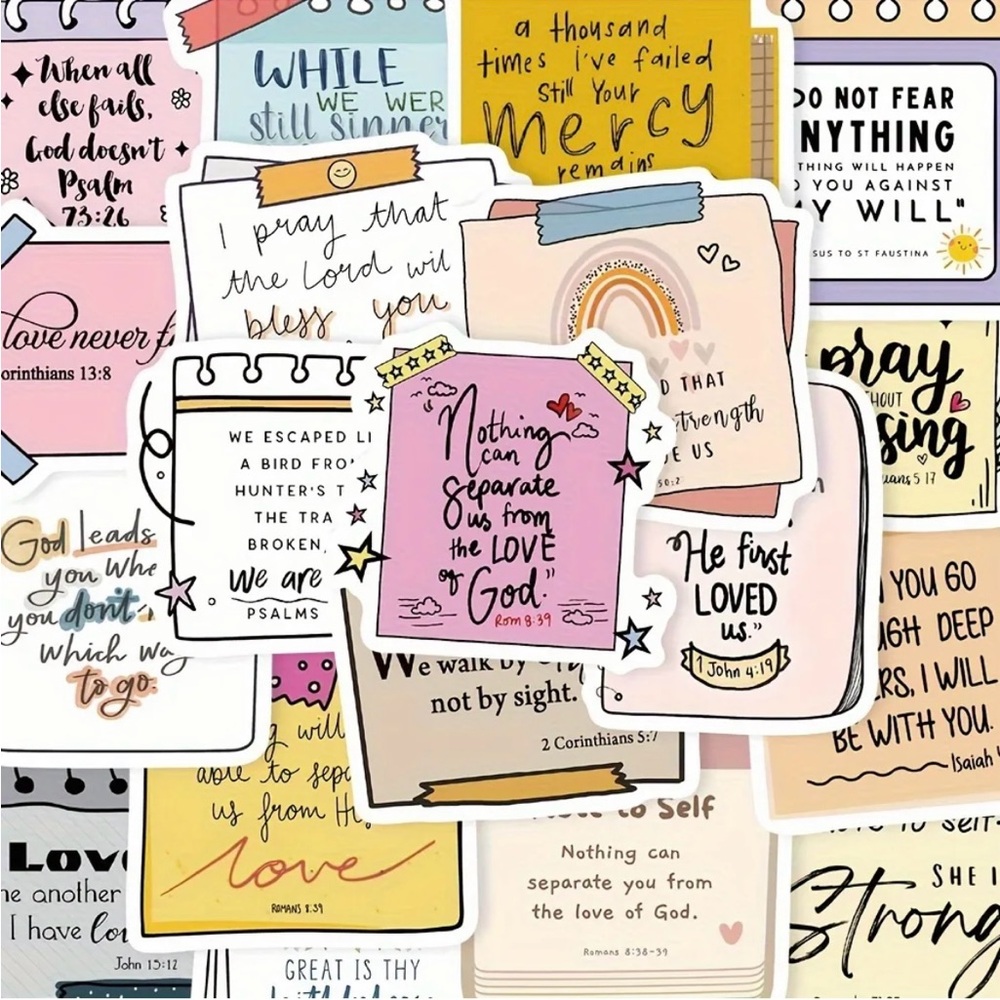 When all
else fails,
God doesn't
Psalm
73:26
WHILE
WE WER
still sinner
a thousand
times i've failed
Still Your
Mercy
remains
DO NOT FEAR
NYTHING
THING WILL HAPPEN
YOU AGAINST
Y WILL"
SUS TO ST FAUSTINA
I pray that
the Lord will
bless you
love never f
orinthians 13:8
D THAT
trength
E US
50:2
pray
HOUT
sing
ians 5 17
WE ESCAPED LI
A BIRD FRO
HUNTER'S T
THE TRA
BROKEN,
We are
PSALMS
Nothing
can
Separate
us from
the LOVE
of God."
Rom 8:39
"He first
LOVED
us."
1 John 4:19
God leads
you whe
you don't
which wa
to go.
YOU GO
UGH DEEP
ERS, I WILL
BE WITH YOU.
Isaiah
We walk by
not by sight.
2 Corinthians 5:7
will
able to sepa
us from Hi
love
ROMANS 8:39
to Self
Nothing can
separate you from
the love of God.
Romans 8:38-39
Lov
ne another
I have lov
John 15:12
GREAT IS THY
to self
SHE I
Strong